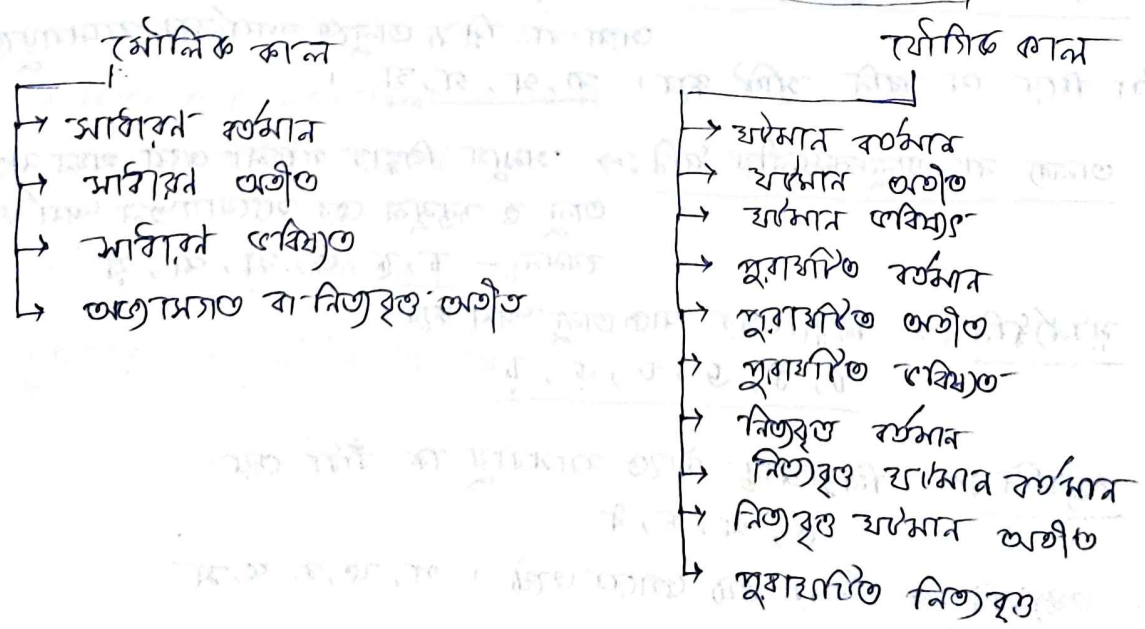 মৌলিক কাল
সাধারণ বর্তমান
সাধারণ অতীত
সাধারণ ভবিষ্যত
অভ্যাসগত বা নিত্যবৃত্ত অতীত
যৌগিক কাল
ঘটমান বর্তমান
ঘটমান অতীত
ঘটমান ভবিষ্যৎ
পুরাঘটিত বর্তমান
পুরাঘটিত অতীত
পুরাঘটিত ভবিষ্যত
নিত্যবৃত্ত বর্তমান
নিত্যবৃত্ত ঘটমান বর্তমান
নিত্যবৃত্ত ঘটমান অতীত
পুরাঘটিত নিত্যবৃত্ত